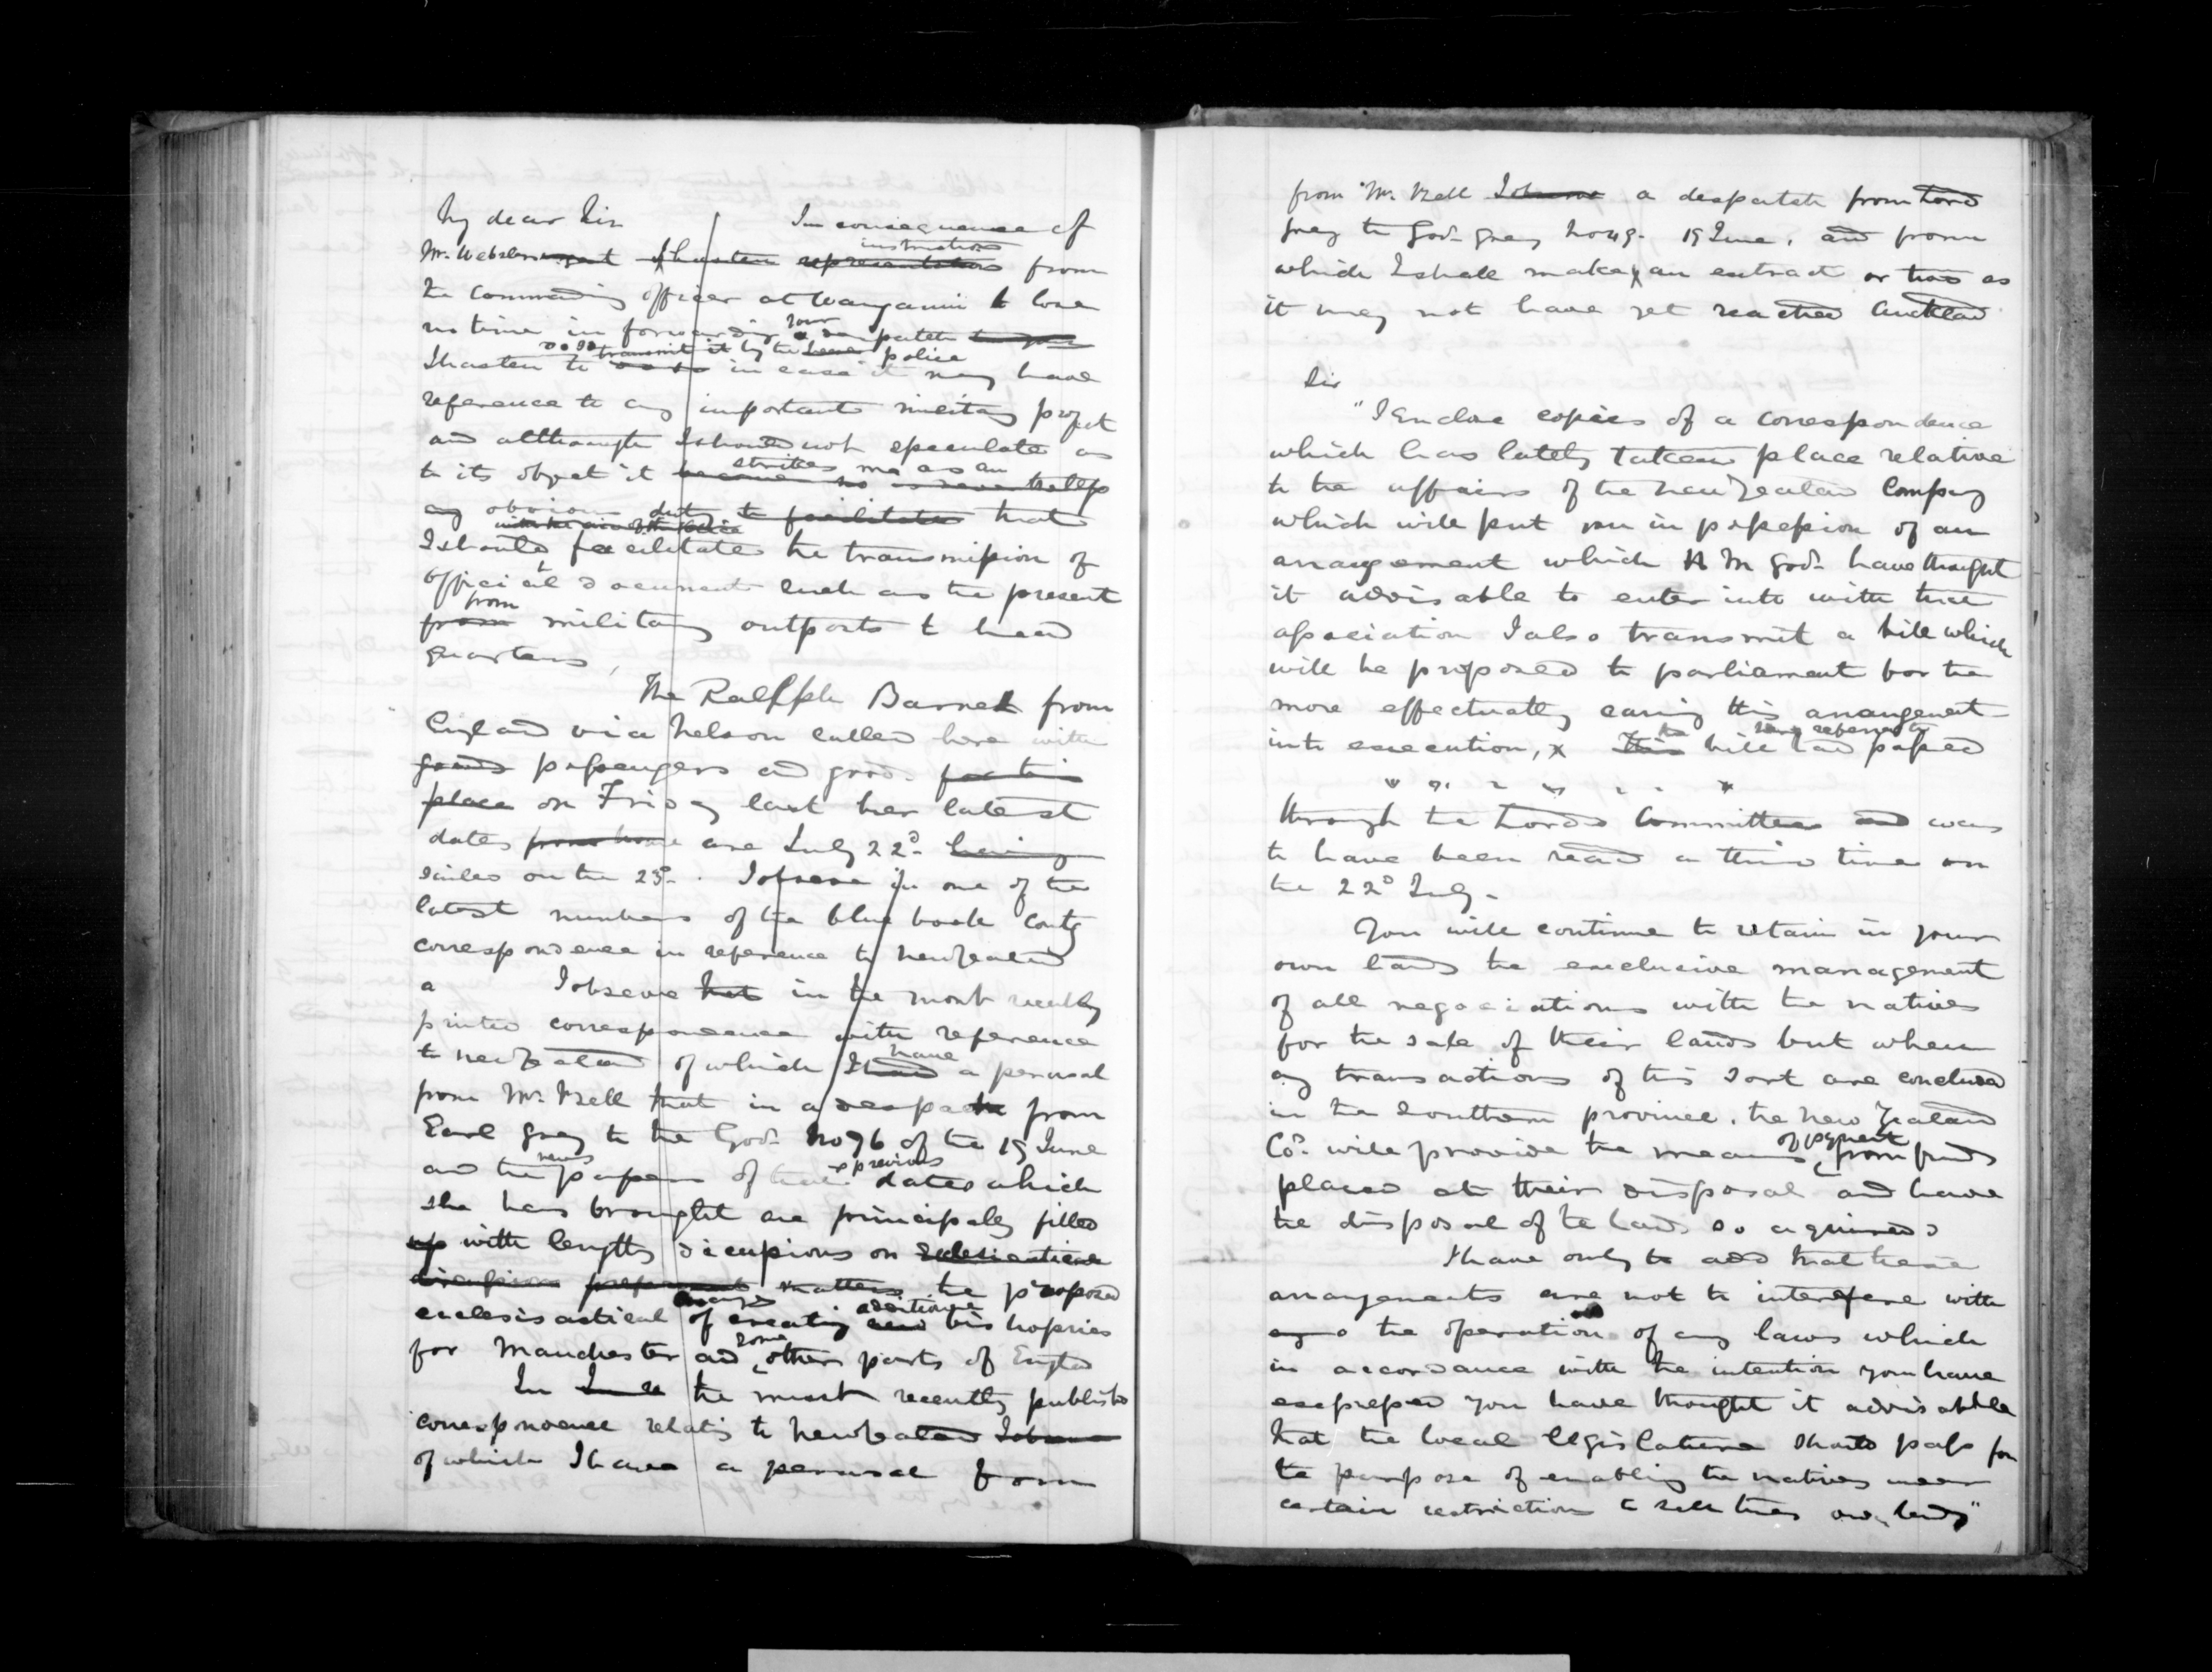 My dear Sir In consequence of
Mr. Webster urgent I hasten representations instructions from
the Commanding officer at Wanganui to lose
no time in forwarding a your despatch to you
I hasten to do so transmit it by the police in case it may have
reference to any important military project
and although I should not speculate as
to its object it strikes me as an
any obvious duty to facilitate that
I should facilitate the transmission of
official documents such as the present
from from military outposts to head
quarters,
The Ralph Barnet from
England via Nelson called here with
goods passengers and goods for this
place on Friday last her latest
dates from home are July 22d. having
sailed on the 23d. I observe in one of the
latest numbers of the blue book contg
correspondence in reference to New Zealand
a I observe that in the most recently
printed correspondence with reference
to New Zealand of which I had have a perusal
from Mr. Bell that in a despatch from
Earl Grey to the Govr. No 76 of the 19 June
and the news papers of previous dates which
she has brought are principally filled
up with lengthy discussions on ecclesiastical
discussions matters the proposed
ecclesiastical of creating new additional bishoprics
for Manchester and some other parts of Engld
In the most recently published
correspondence relatig to New Zealand I observe
of which I have a perusal from
from Mr. Bell I observe a despatch from Lord
Grey to Govr. Grey No 49. 19 June. and from
which I shall make an extract or two as
it may not have yet reached Auckland
Sir
"I Enclose copies of a correspondence
which has lately taken place relative
to the affairs of the New Zealand Company
which will put you in possession of an
arrangement which H M Govt. have thought
it advisable to enter into with that
association I also transmit a bill which
will be proposed to parliament for the
more effectually carring this arrangement
into execution, x This the bill referred to had passed
through the Lords Committee and was
to have been read a third time on
the 22d July.
You will continue to retain in your
own hands the exclusive management
of all negociations with the natives
for the sale of their lands but when
any transactions of this sort are concluded
in the southern province. the New Zealand
Co. will provide the means of payment from funds
placed at their disposal and have
the disposal of the lands so acquired
I have only to add that these
arrangements are not to interfere with
the operation of any laws which
in accordance with the intention you have
expressed you have thought it advisable
that the local legislature should pass for
the purpose of enabling the natives under
certain restriction to sell their own lands"